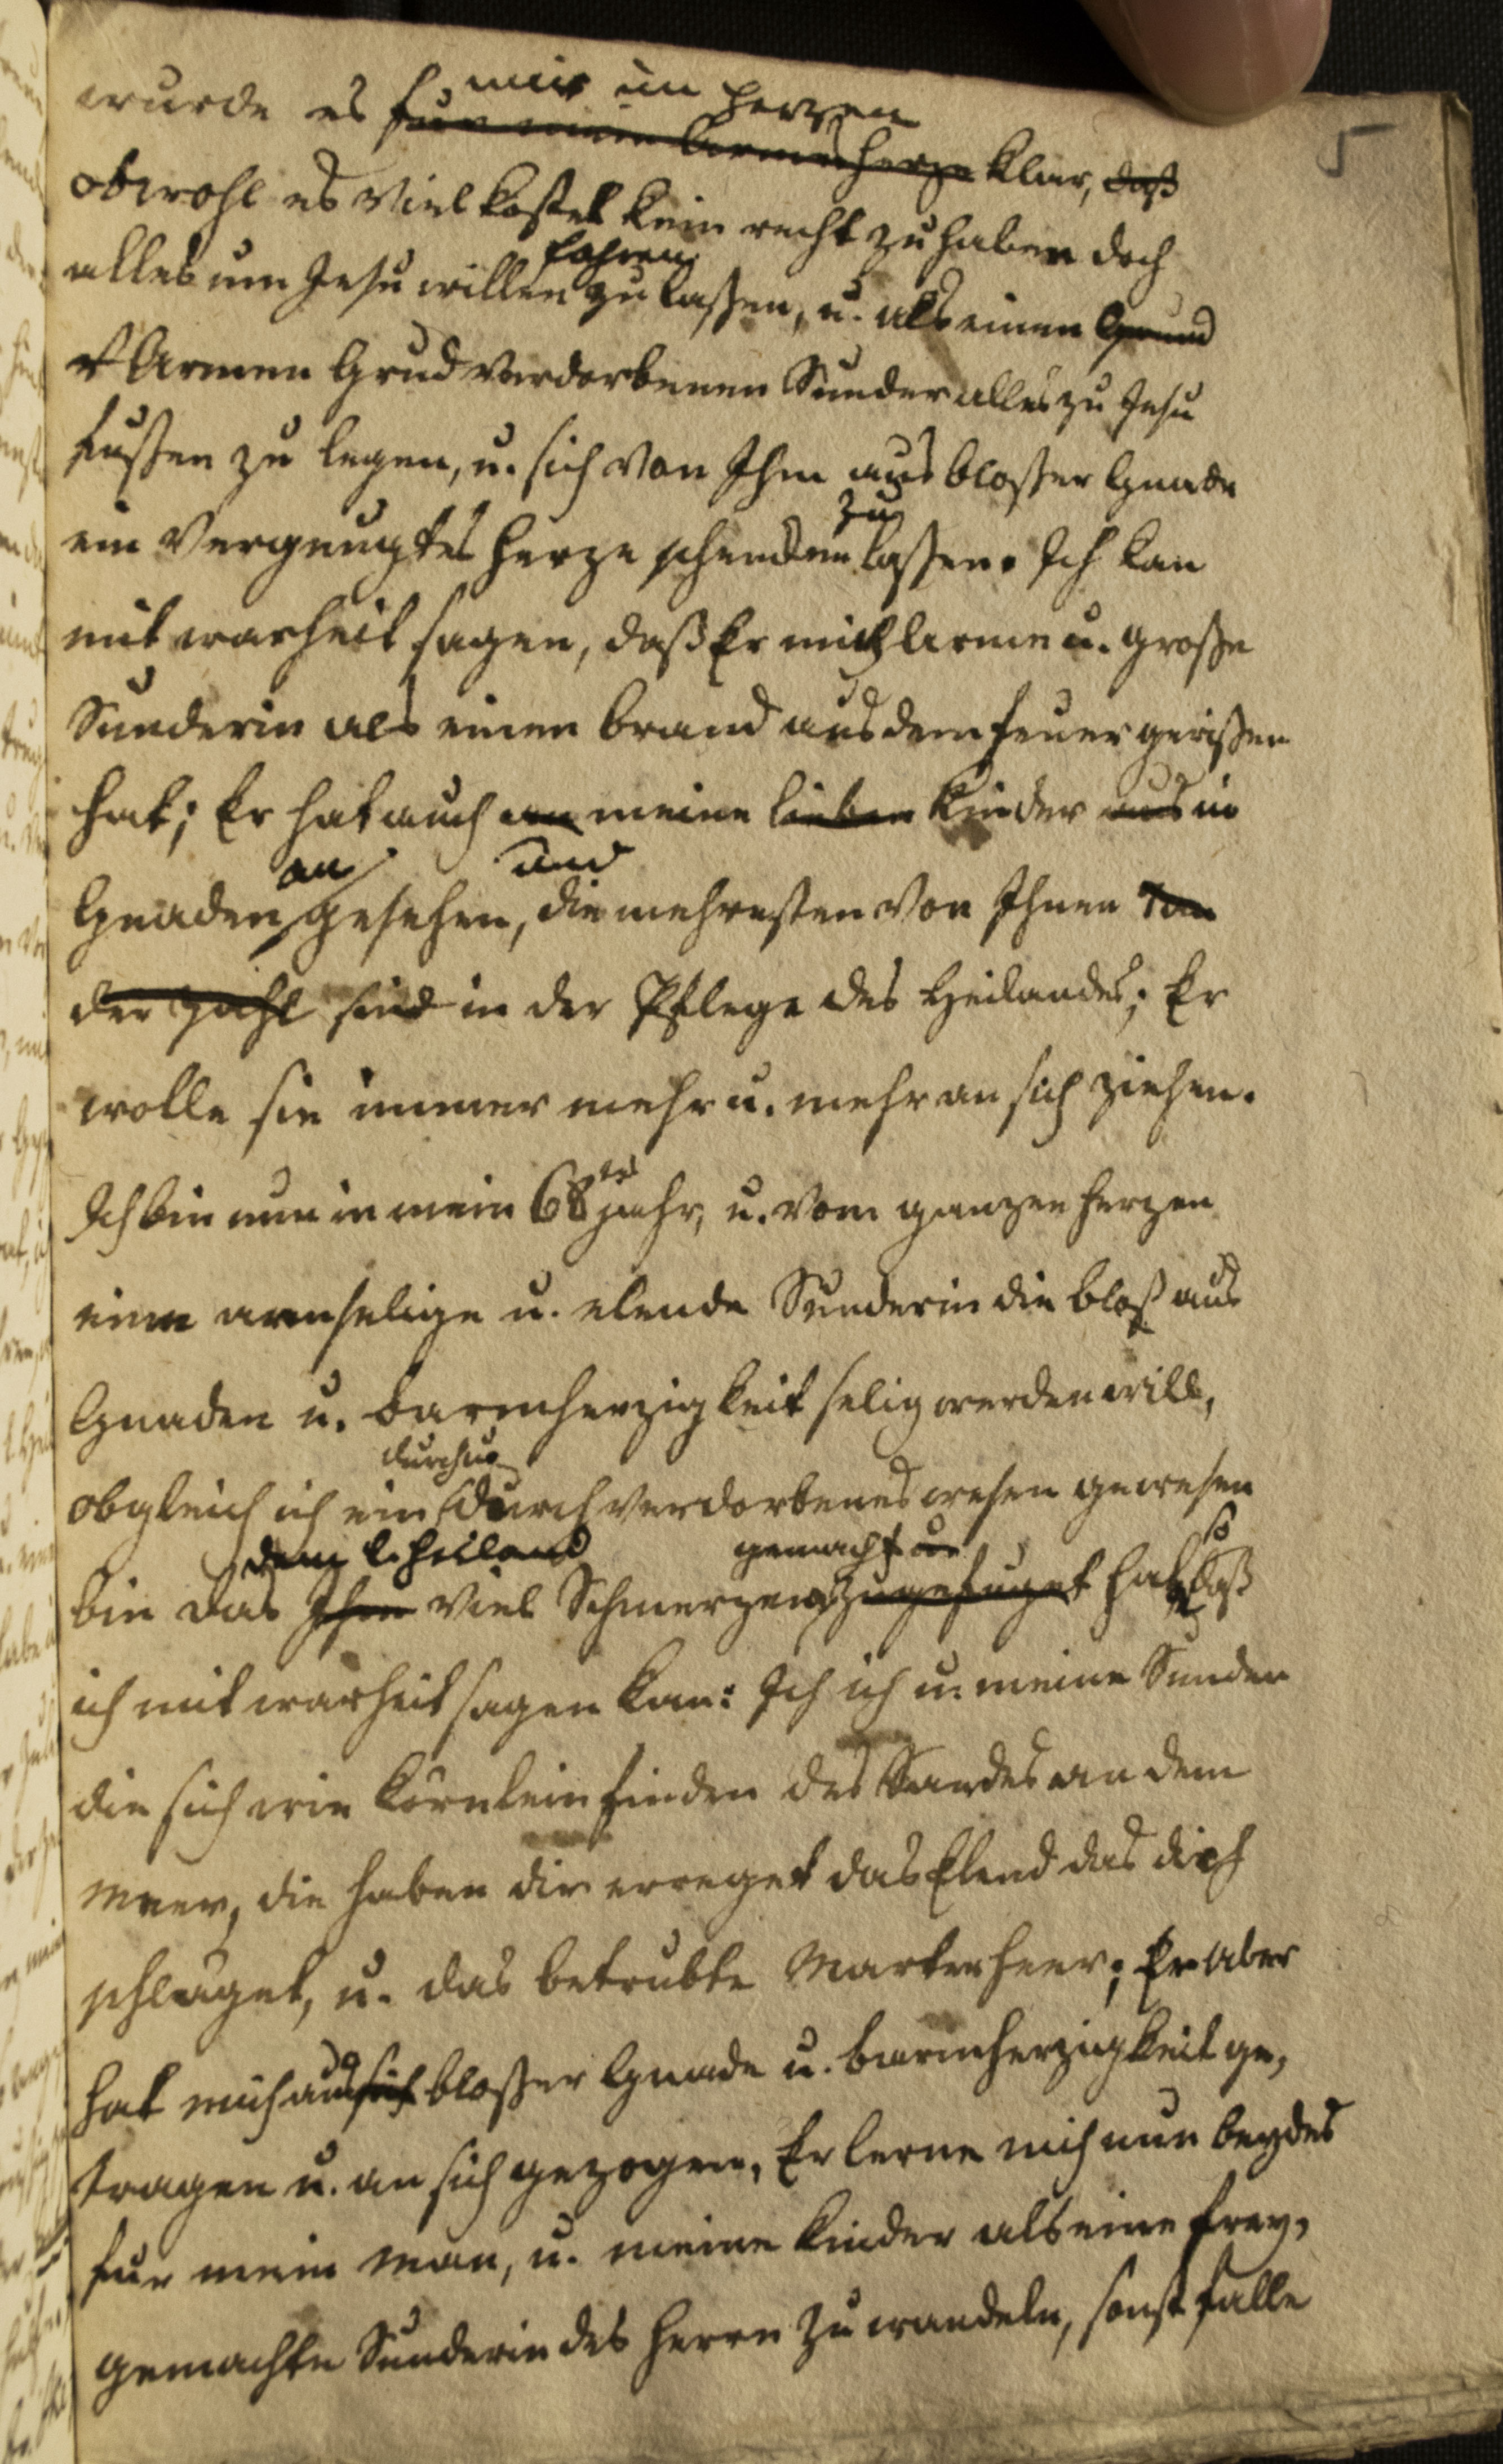 5
wurde es mir im Herzen fur mein armes Herze klar, daß
obwohl es viel kostet kein recht zu haben doch
alles um Jesu willen fahren zu laßen, u. als einen Grund
Armen Grud verdorbenen Sunder alles zu Jesu
fußen zu legen, u. sich von Ihm aus bloßer Gnade
ein Vergnugtes Herze schencken zu laßen. Ich kan
mit warheit sagen, daß Er mich arme u. große
Sunderin als einen brand aus dem feuer gerißen
hat; Er hat auch an meine lieben Kinder aus in
Gnaden an gesehen, und die mehresten von Ihnen
der zahl sind in der Pflege des Heilandes; Er
wolle sie immer mehr u. mehr an sich ziehen.
Ich bin nun in mein 68tes jahr, u. vom ganzen Herzen
eine armselige u. elende Sunderin die bloß aus
Gnaden u. barmherzigkeit selig werden will,
obgleich ich ein durchus durch verdorbenes wesen gewesen
bin das dem l. Heiland Ihm viel Schmerzen gemacht u. zugefuget hat so daß
ich mit warheit sagen kan: Ich ich u. meine Sunden
die sich wie Körnlein finden des Sandes an dem
Meer, die haben dir erreget das Elend das dich
schläget, u. das betrubte Marterheer; Er aber
hat mich aus sich bloßer Gnade u. barmherzigkeit ge,
tragen u. an sich gezogen, Er lerne mich nun beydes
fur mein Man, u. meine Kinder als eine frey,
gemachte Sunderin des Herrn zu wandeln, sonst falle